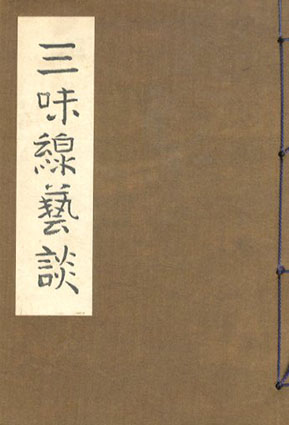 三味線藝談